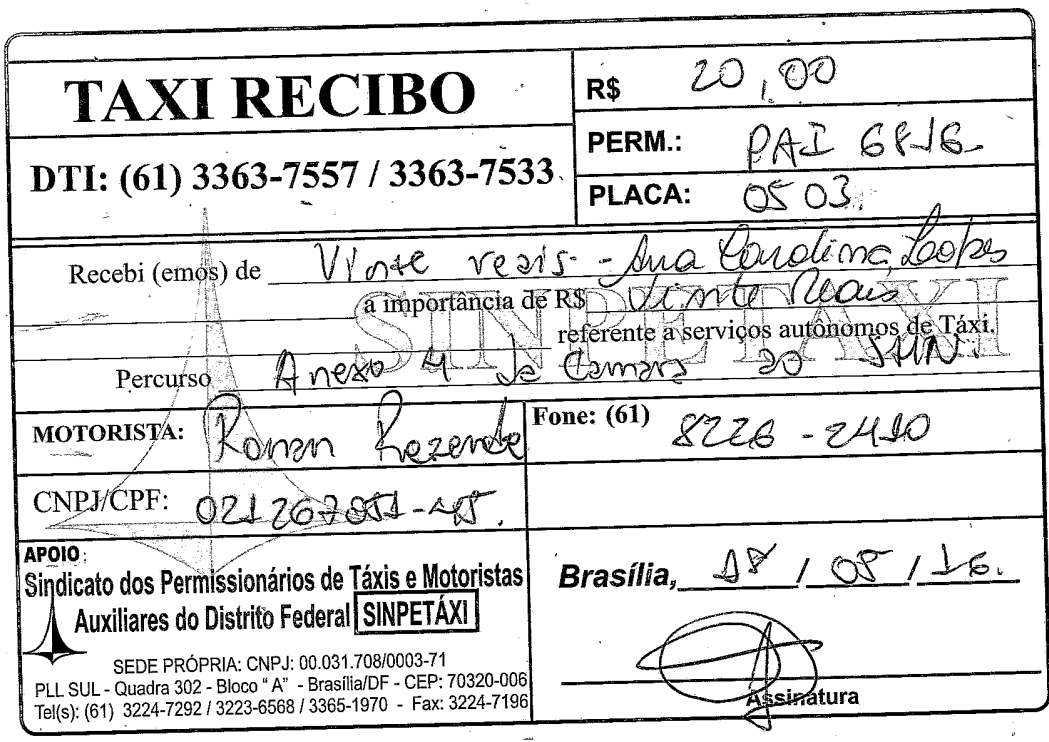 TAXI RECIBO
R$ 20,00
DTI: (61) 3363-7557 / 3363-7533
PERM.: PAI
PLACA: 0503
Recebi (emos) de Vinte reais - Ana Carolina Lopes
a importância de R$ Vinte Reais
SINPETAXI
referente a serviços autônomos de Táxi.
Percurso Anexo 4 da Camara ao SHN.
MOTORISTA: Ronan Rezende
Fone: (61) 8226-2410
CNPJ/CPF:
APOIO:
Sindicato dos Permissionários de Táxis e Motoristas
Auxiliares do Distrito Federal SINPETÁXI
SEDE PRÓPRIA: CNPJ: 00.031.708/0003-71
PLL SUL - Quadra 302 - Bloco "A" - Brasília/DF - CEP: 70320-006
Tel(s): (61) 3224-7292 / 3223-6568 / 3365-1970 - Fax: 3224-7196
Brasília, / / 16.
Assinatura